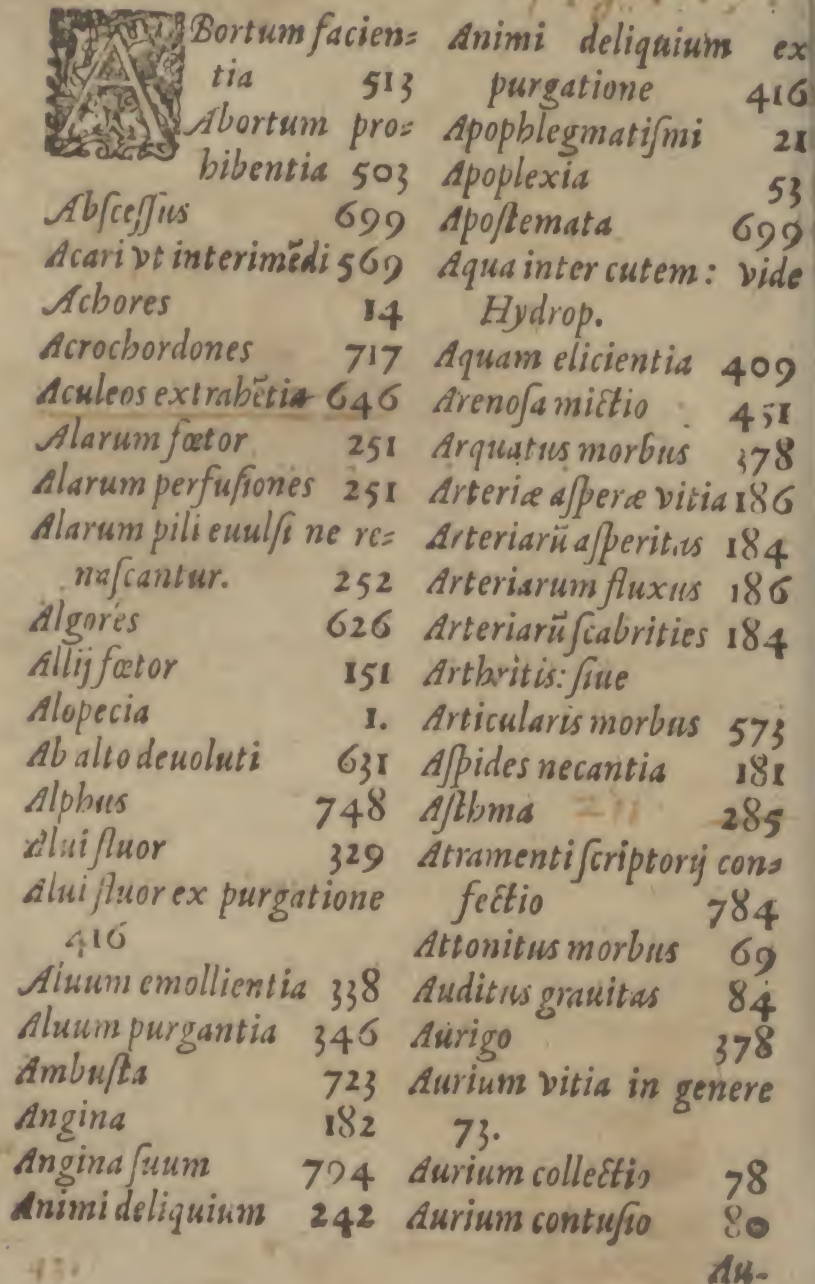 ABortum facien⸗
tia 513
Abortum pro⸗
hibentia 503
Abſceſſus 699
Acari vt interimēdi 569
Achores 14
Acrochordones 717
Aculeos extrahētia 646
Alarum fœtor 251
Alarum perfuſiones 251
Alarum pili euulſi ne re⸗
naſcantur. 252
Algores 626
Allij fœtor 151
Alopecia 1.
Ab alto deuoluti 631
Alphus 748
Alui fluor 329
Alui fluor ex purgatione
416
Aluum emollientia 338
Aluum purgantia 346
Ambuſta 723
Angina 182
Angina ſuum 794
Animi deliquium 242
Animi deliquium ex
purgatione 416
Apophlegmatiſmi 21
Apoplexia 53
Apoſtemata 699
Aqua inter cutem: vide
Hydrop.
Aquam elicientia 409
Arenoſa mictio 451
Arquatus morbus 378
Arteriæ aſperæ vitia 186
Arteriarū aſperitas 184
Arteriarum fluxus 186
Arteriarū ſcabrities 184
Arthritis: ſiue
Articularis morbus 573
Aſpides necantia 181
Aſthma 285
Atramenti ſcriptorij con⸗
fectio 784
Attonitus morbus 69
Auditus grauitas 84
Aurigo 378
Aurium vitia in genere
73.
Aurium collectio 78
Aurium contuſio 80
Au-